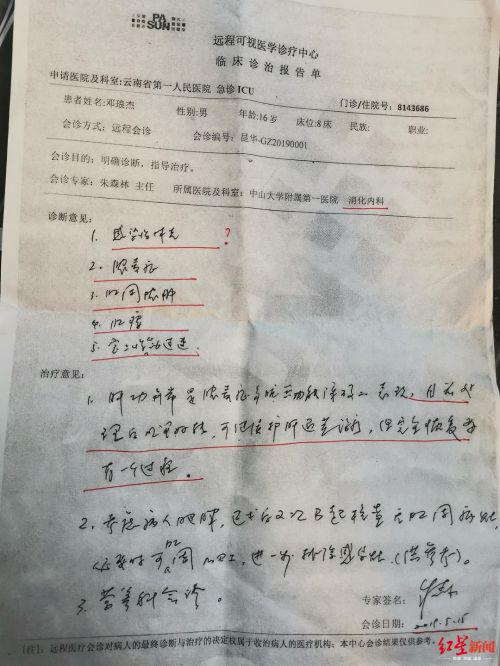 PA
SUN
远程可视医学诊疗中心
临床诊治报告单
申请医院及科室:云南省第一人民医院 急诊ICU 门诊/住院号:8143686
患者姓名:邓琅杰 性别:男 年龄:16岁 床位:8床 民族: 职业:
会诊方式:远程会诊 会诊编号:昆华-GZ20190001
会诊目的:明确诊断,指导治疗。
会诊专家:朱森林 主任 所属医院及科室:中山大学附属第一医院 消化内科
诊断意见:
1. 感染性休克 ?
2. 脓毒症
3. 肛周脓肿
4. 肛瘘
5.
治疗意见:
1. 肝功异常是脓毒症多脏器功能障碍之表现,目前处
理后明显好转,可继续护肝退黄治疗,但完全恢复要
有一个过程。
2. 考虑病人肥胖,
必要时可 肛周 MRI,进一步排除感染灶(供参考)。
3. 营养科会诊。
专家签名:
会诊日期: 2019.5.15
[注]:远程医疗会诊对病人的最终诊断与治疗的决定权属于收治病人的医疗机构;本中心会诊结果仅供参考。
红星新闻